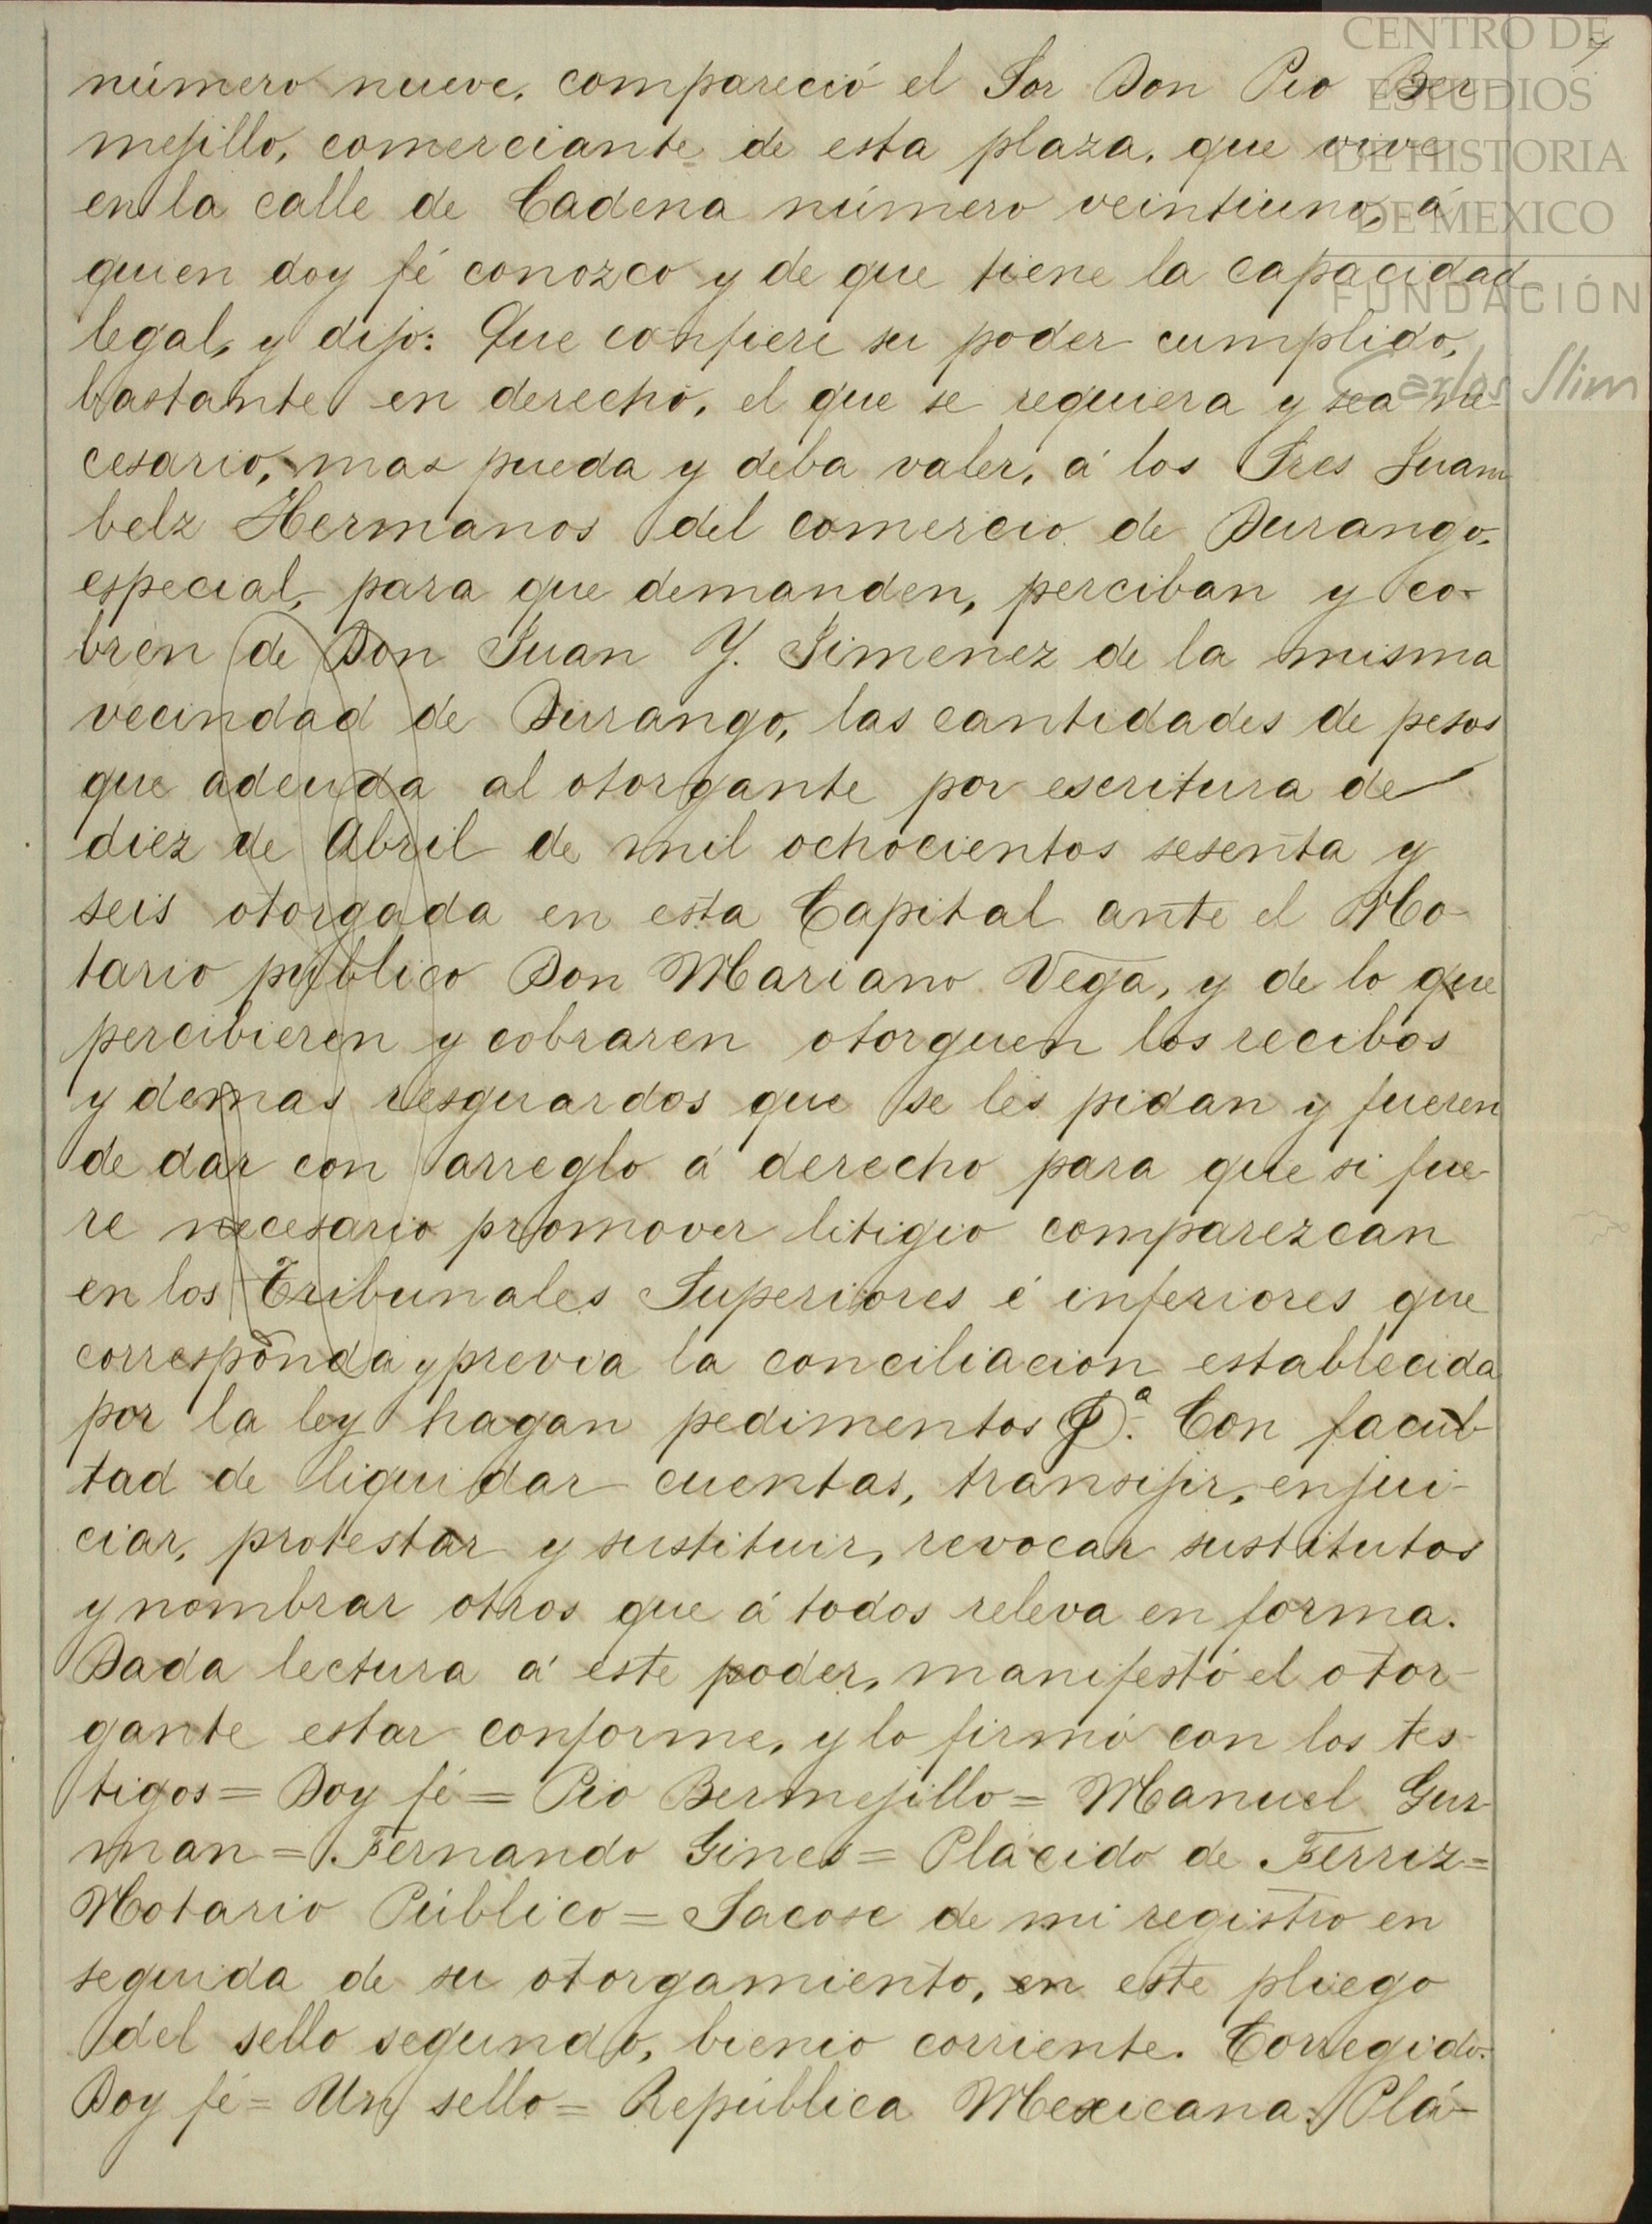 número nueve, compareció el Sor Don Pio Ber-
mejillo, comerciante de esta plaza, que vive
en la calle de Cadena número veintiuno, á
quien doy fé conozco y de que tiene la capacidad
legal, y dijo: Que confiere su poder cumplido,
bastante en derecho, el que se requiera y sea ne-
cesario, mas pueda y deba valer, á los Sres Juam
belz Hermanos del comercio de Durango,
especial, para que demanden, perciban y co-
bren de Don Juan Y. Jimenez de la misma
vecindad de Durango, las cantidades de pesos
que adeuda al otorgante por escritura de
diez de Abril de mil ochocientos sesenta y
seis otorgada en esta Capital ante el No-
tario público Don Mariano Vega, y de lo que
percibieren y cobraren otorguen los recibos
y demas resguardos que se les pidan y fueren
de dar con arreglo á derecho para que si fue-
re necesario promover litigio comparezcan
en los Tribunales Superiores é inferiores que
corresponda y previa la conciliacion establecida
por la ley hagan pedimentos Con facul-
tad de liquidar cuentas, transijir, enjui-
ciar, protestar y sustituir, revocar sustitutos
y nombrar otros que á todos releva en forma.
Dada lectura á este poder, manifestó el otor-
gante estar conforme, y lo firmó con los tes-
tigos = Doy fé = Pio Bermejillo = Manuel Guz-
man = Fernando Gines = Plácido de Ferriz =
Notario Público = Sacose de mi registro en
seguida de su otorgamiento, en este pliego
del sello segundo, bienio corriente. Corregido.
Doy fé = Un sello = República Mexicana. Plá-
CENTRO DE
ESTUDIOS
DE HISTORIA
DE MEXICO
FUNDACIÓN
Carlos Slim